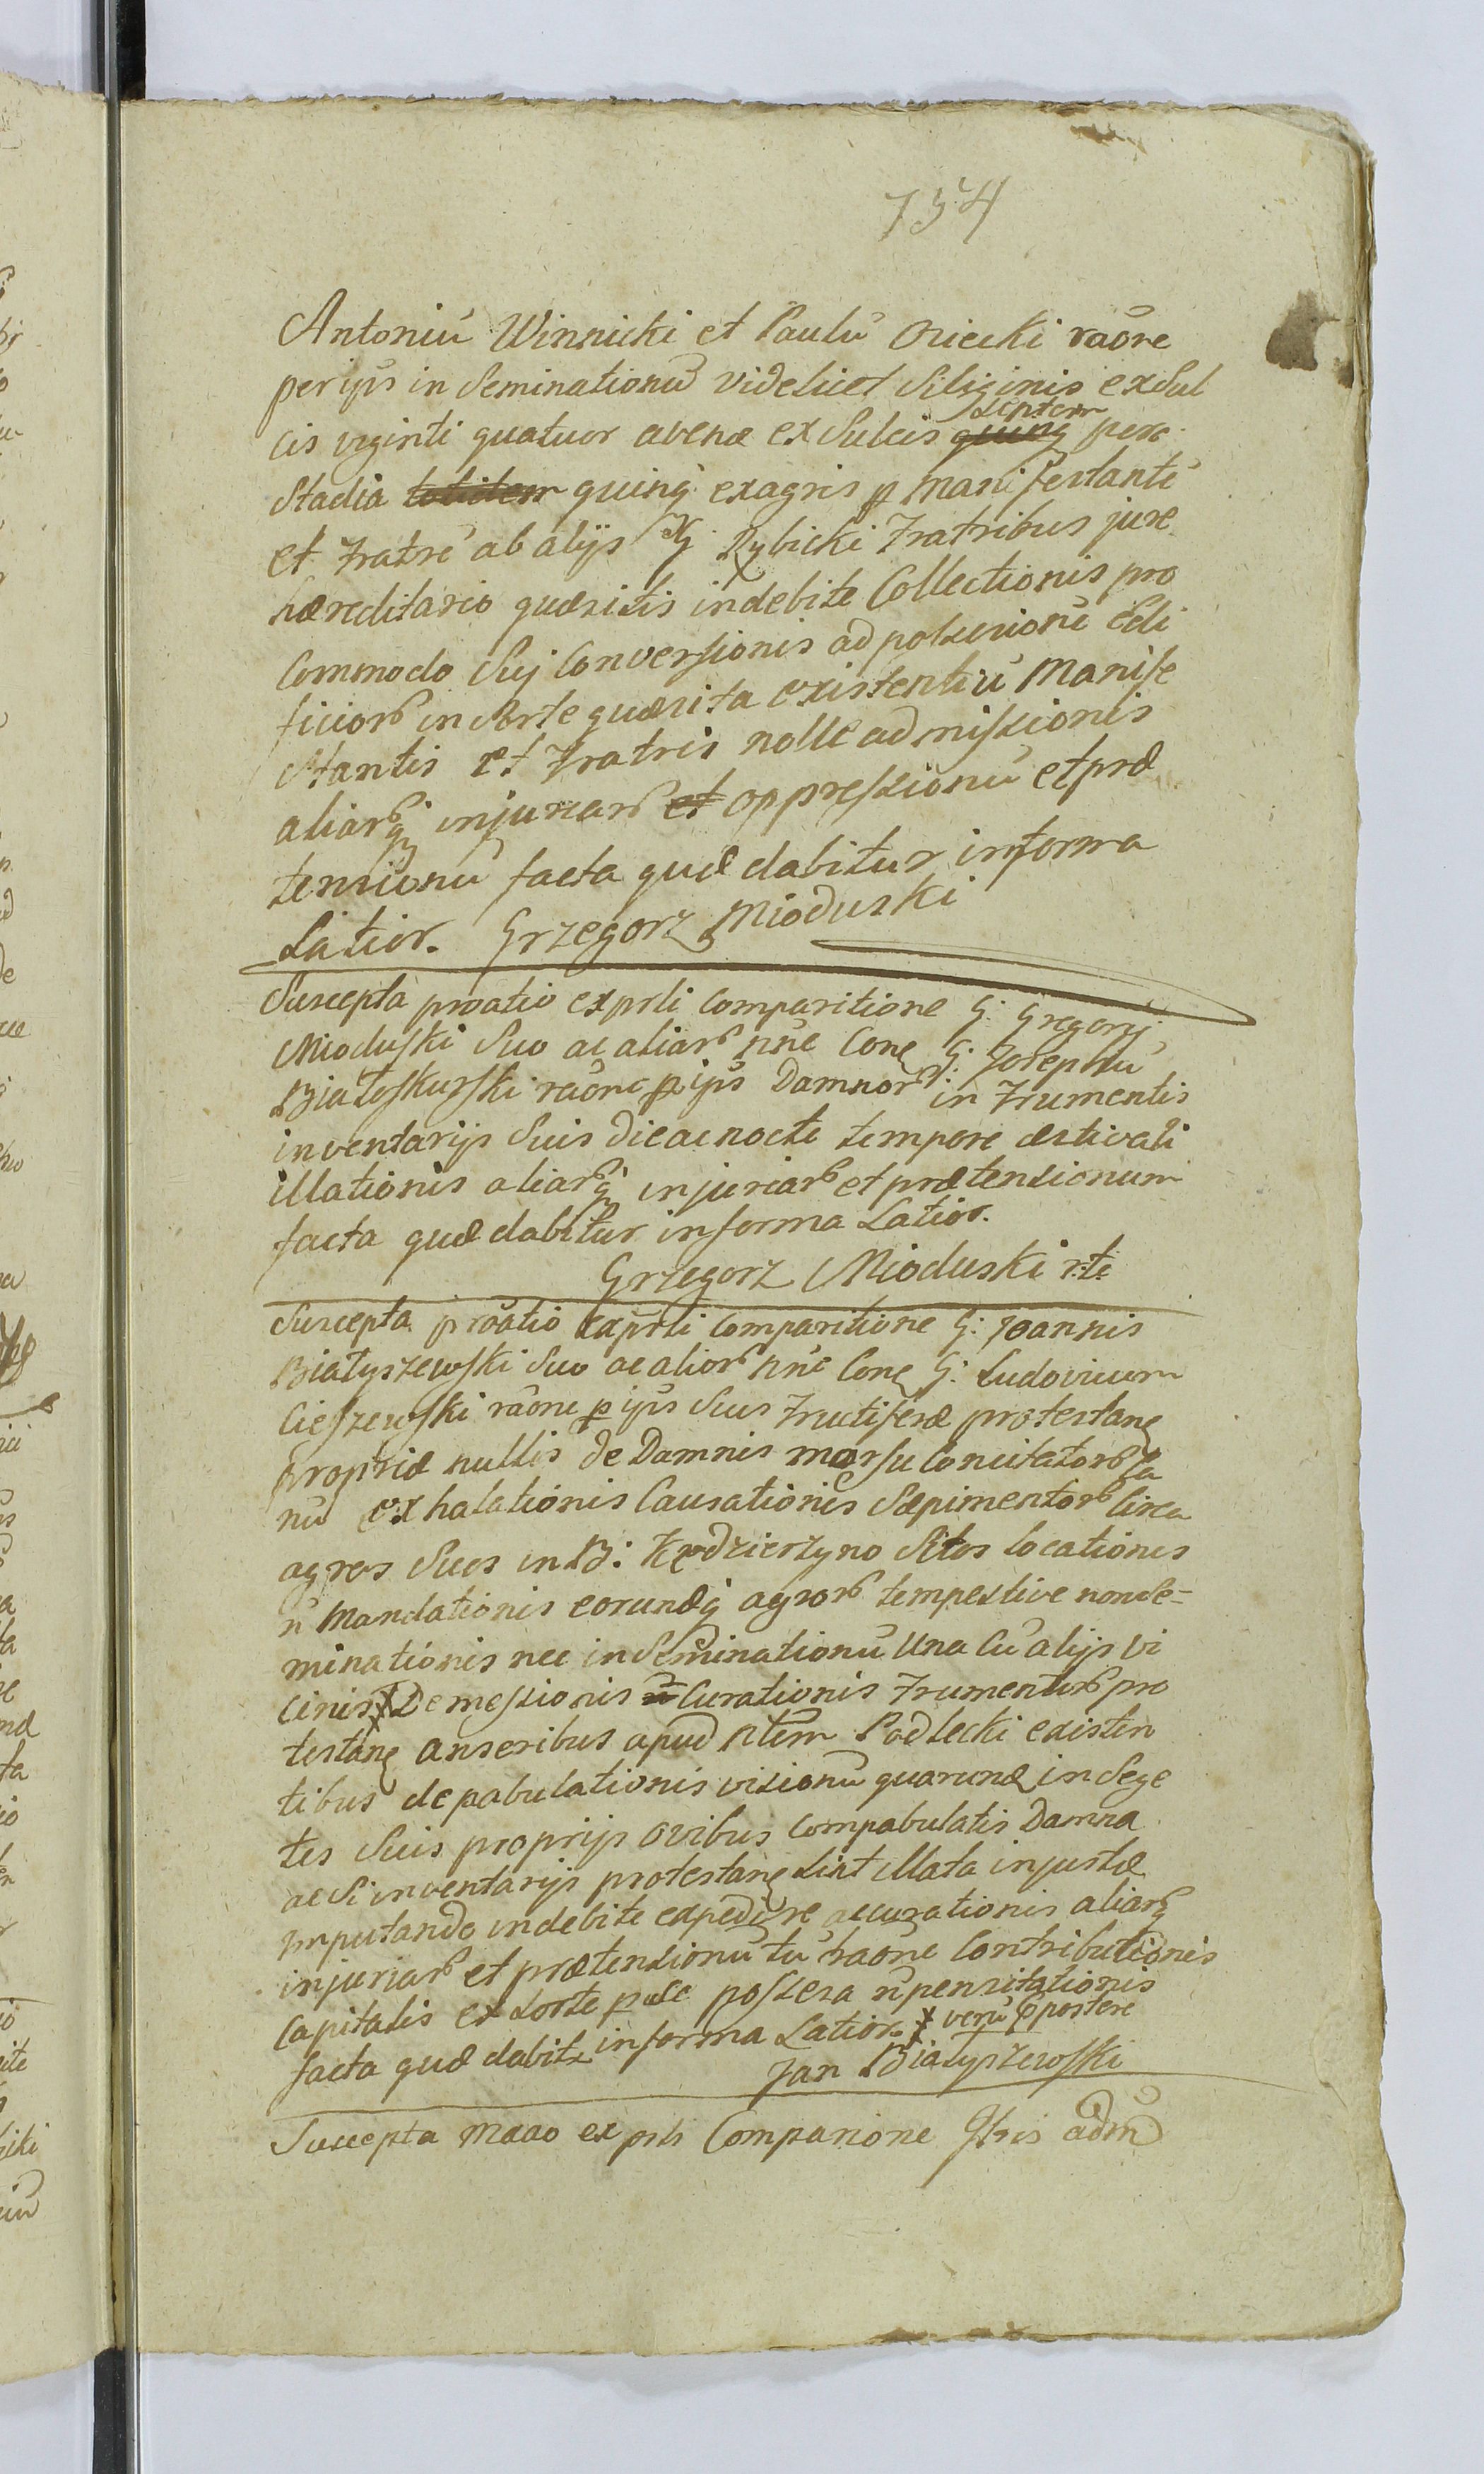 754
Antoniū Winnicki et Paulū Osiecki raõne
per ipūs in Seminationū videlicet Siliginis ex Sul
cis viginti quatuor avenæ ex Sulcis quinq septem per
Stadia totidem quinq exagris p manifestantē
et Fratrē ab alijs G Rybicki Fratribus jure
hæreditario quæsitis indebite Collectionis pro
Commodo Suj Conversionis ad possessionē Edi
ficior in Sorte quæsita existentiū Manife
stantis et Fratris nolle admissionis
aliarq injuriar et oppressionū et præ
tensionū facta quæ dabitur in forma
Latior. Grzegorz Mioduski
Suscepta proatio ex prsti Comparitione G: Gregorij
Mioduski Suo ac aliar nne Con G: Josephū
Białoskurski raõne p ipūs Damnor in Frumentis
inventarijs Suis die ac nocte tempore æstivali
illationis aliarq injuriar et prætensionum
facta quæ dabitur in forma Latior.
Grzegorz Mioduski r:te
Suscepta proatio ex prsti Comparitione G: Joannis
Białyszewski Suo ac alior nne Con G: Ludovicum
Cieszewski raõne p ipūs Suis Fructiferæ protestan
propriæ nullis de Damnis morsu Concitator Ca
nū exhalationis Causationis Sæpimentor Circa
agros Suos in B: Kędzierzyno Sitos Locationis
ū Mandationis eorundq agror tempestive nonse-
minationis nec in Seminationū Una Cū alijs Vi
cinis Demessionis ū Curationis Frumentor pro
testan anseribus apud Nlem Podlecki existen
tibus depabulationis visionū quarund in Sege
tes Suis proprijs ovibus Compabulatis Damna
ac Si inventarijs protestan Sint illata injustæ
imputando indebite expedire accurationis aliarq
injuriar et prætensionū tū raõne Contributionis
Capitalis ex Sorte p se possessa ū pensitationis
facta quæ dabitr in forma Latior. x verū & postere
Jan Białyszewski
Suscepta maao ex prsti Comparione Gsis adm